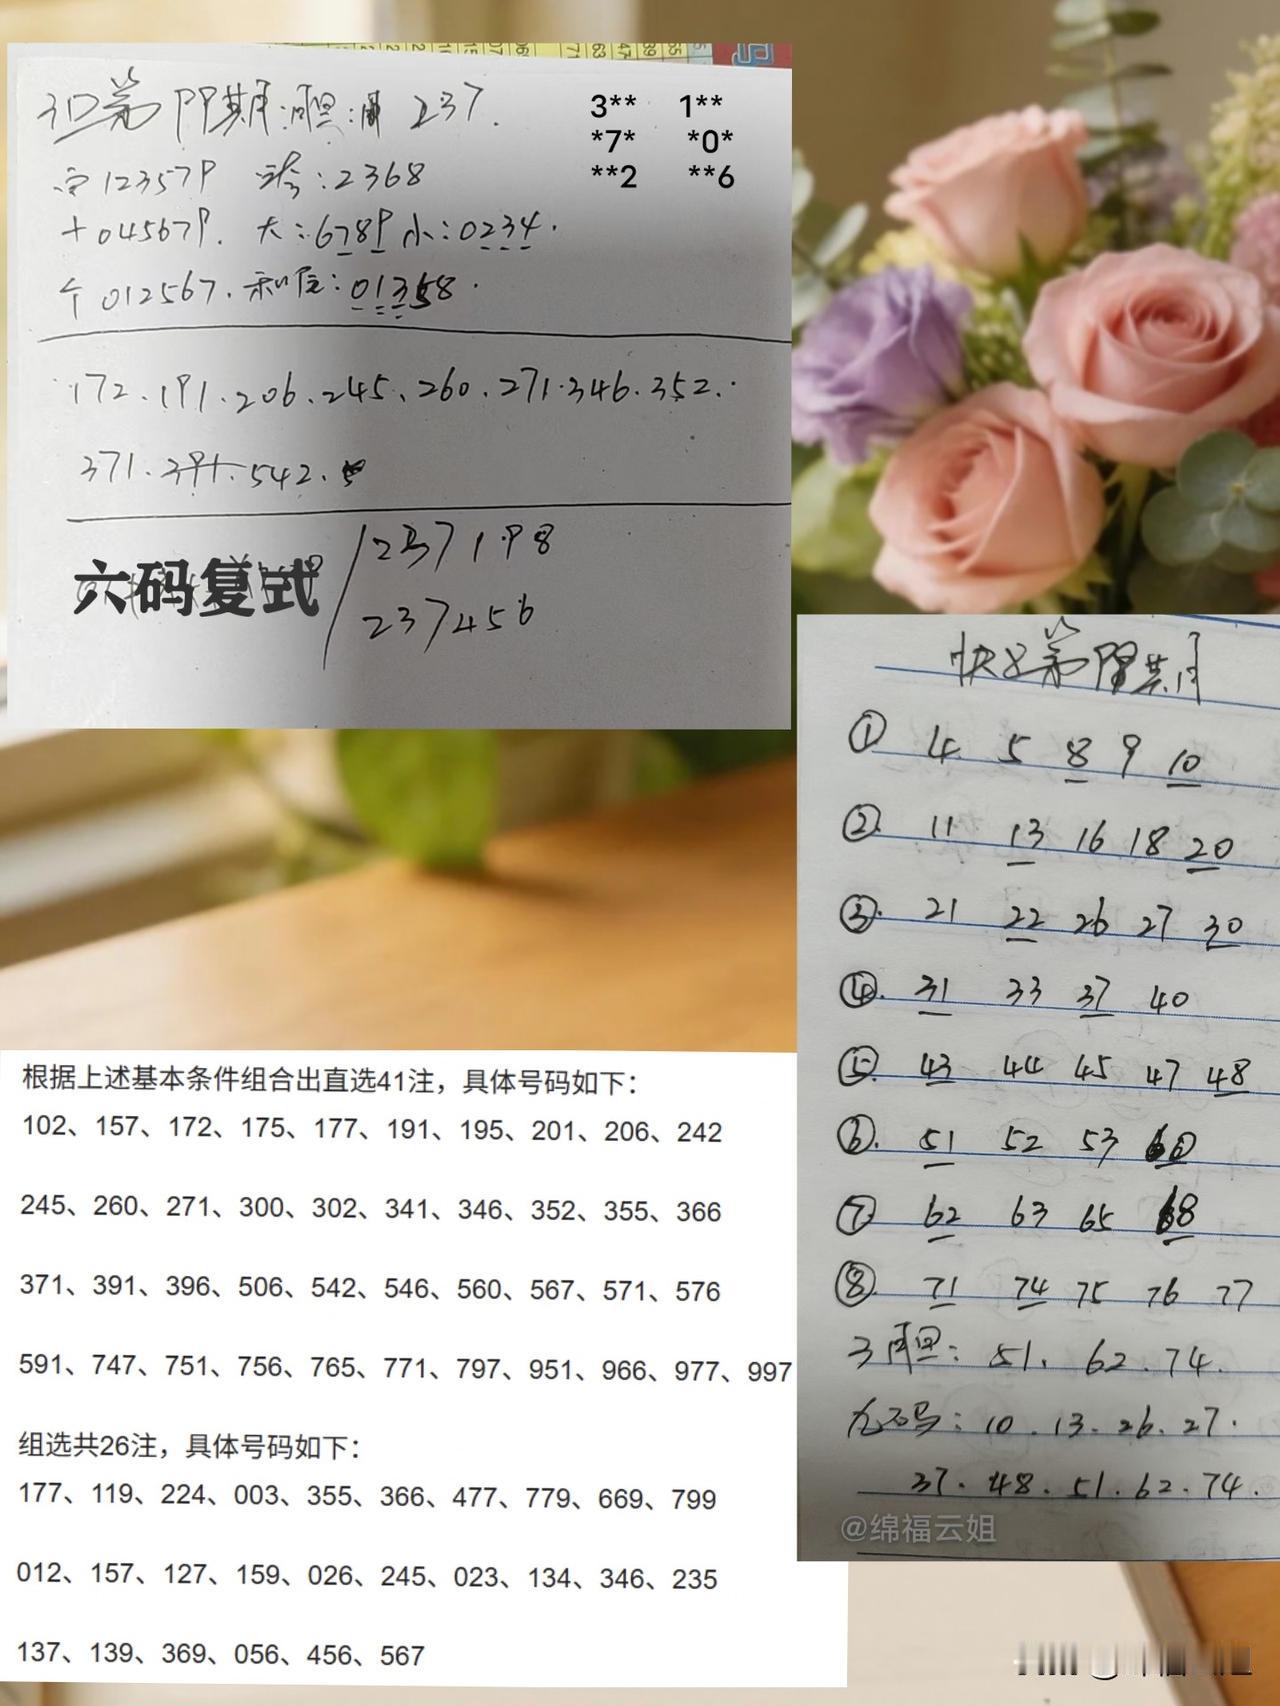 3D第 期:胆:围 237.
3** 1**
*7* *0*
**2 **6
百123579 跨:2368
十045679. 大:6789 小:0234.
个012567. 和值:01358.
172.191.206.245、260.271.346.352.
371.391.542.
六码复式
237198
237456
快8第 期
① 4 5 8 9 10
②. 11 13 16 18 20
③. 21 22 26 27 30
④. 31 33 37 40
⑤. 43 44 45 47 48
⑥. 51 52 53 60
⑦. 62 63 65 68
⑧. 71 74 75 76 77
3胆: 51. 62.74.
九码: 10.13.26.27.
37.48.51.62.74.
@绵福云姐
根据上述基本条件组合出直选41注，具体号码如下：
102、157、172、175、177、191、195、201、206、242
245、260、271、300、302、341、346、352、355、366
371、391、396、506、542、546、560、567、571、576
591、747、751、756、765、771、797、951、966、977、997
组选共26注，具体号码如下：
177、119、224、003、355、366、477、779、669、799
012、157、127、159、026、245、023、134、346、235
137、139、369、056、456、567